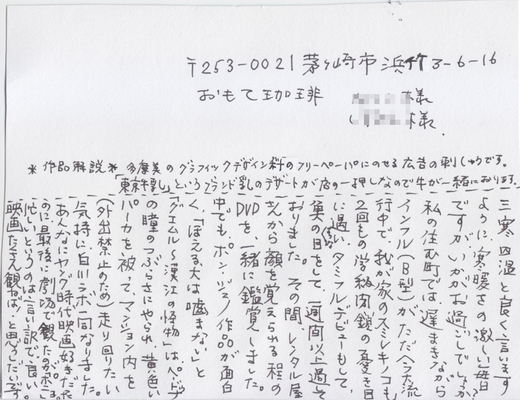 〒253-0021 茅ヶ崎市浜竹3-6-16
おもて珈琲
様
様
*作品解説* 多摩美のグラフィックデザイン科のフリーペーパーにのせる広告の刺しゅうです。
「東京牛乳」というブランド乳のデザートが店の一押しなので牛が一緒におります。
三寒四温と良く言います
ように寒暖差の激しい毎日
ですがいかがお過ごしでしょうか?
私の住む町では遅まきながら
インフル(B型)がただ今大流
行中で、我が家のスミレキノコも
2回もの学級閉鎖の憂き目
に遇い、タミフルデビューもして
散々の日をして一週間以上過して
おりました。その間レンタル屋
さんから顔を覚えられる程の
DVDを一緒に鑑賞しました。
中でも、ポン・ジュノ作品が面白
く、「ほえる犬は噛まない」と
「グエムル〜漢江の怪物」は、ペ・ドゥナ
の瞳のつぶらさにやられ、黄色い
パーカを被って、マンション内を
(外出禁止のため)走り回りたい
気持に白川ラボ一同なりました。
あんなにヤング時代映画好きだった
のに最後に劇場で観たのがポニョ。
忙しいというのは言い訳で良い
映画たくさん観なければ!と思うしだいです